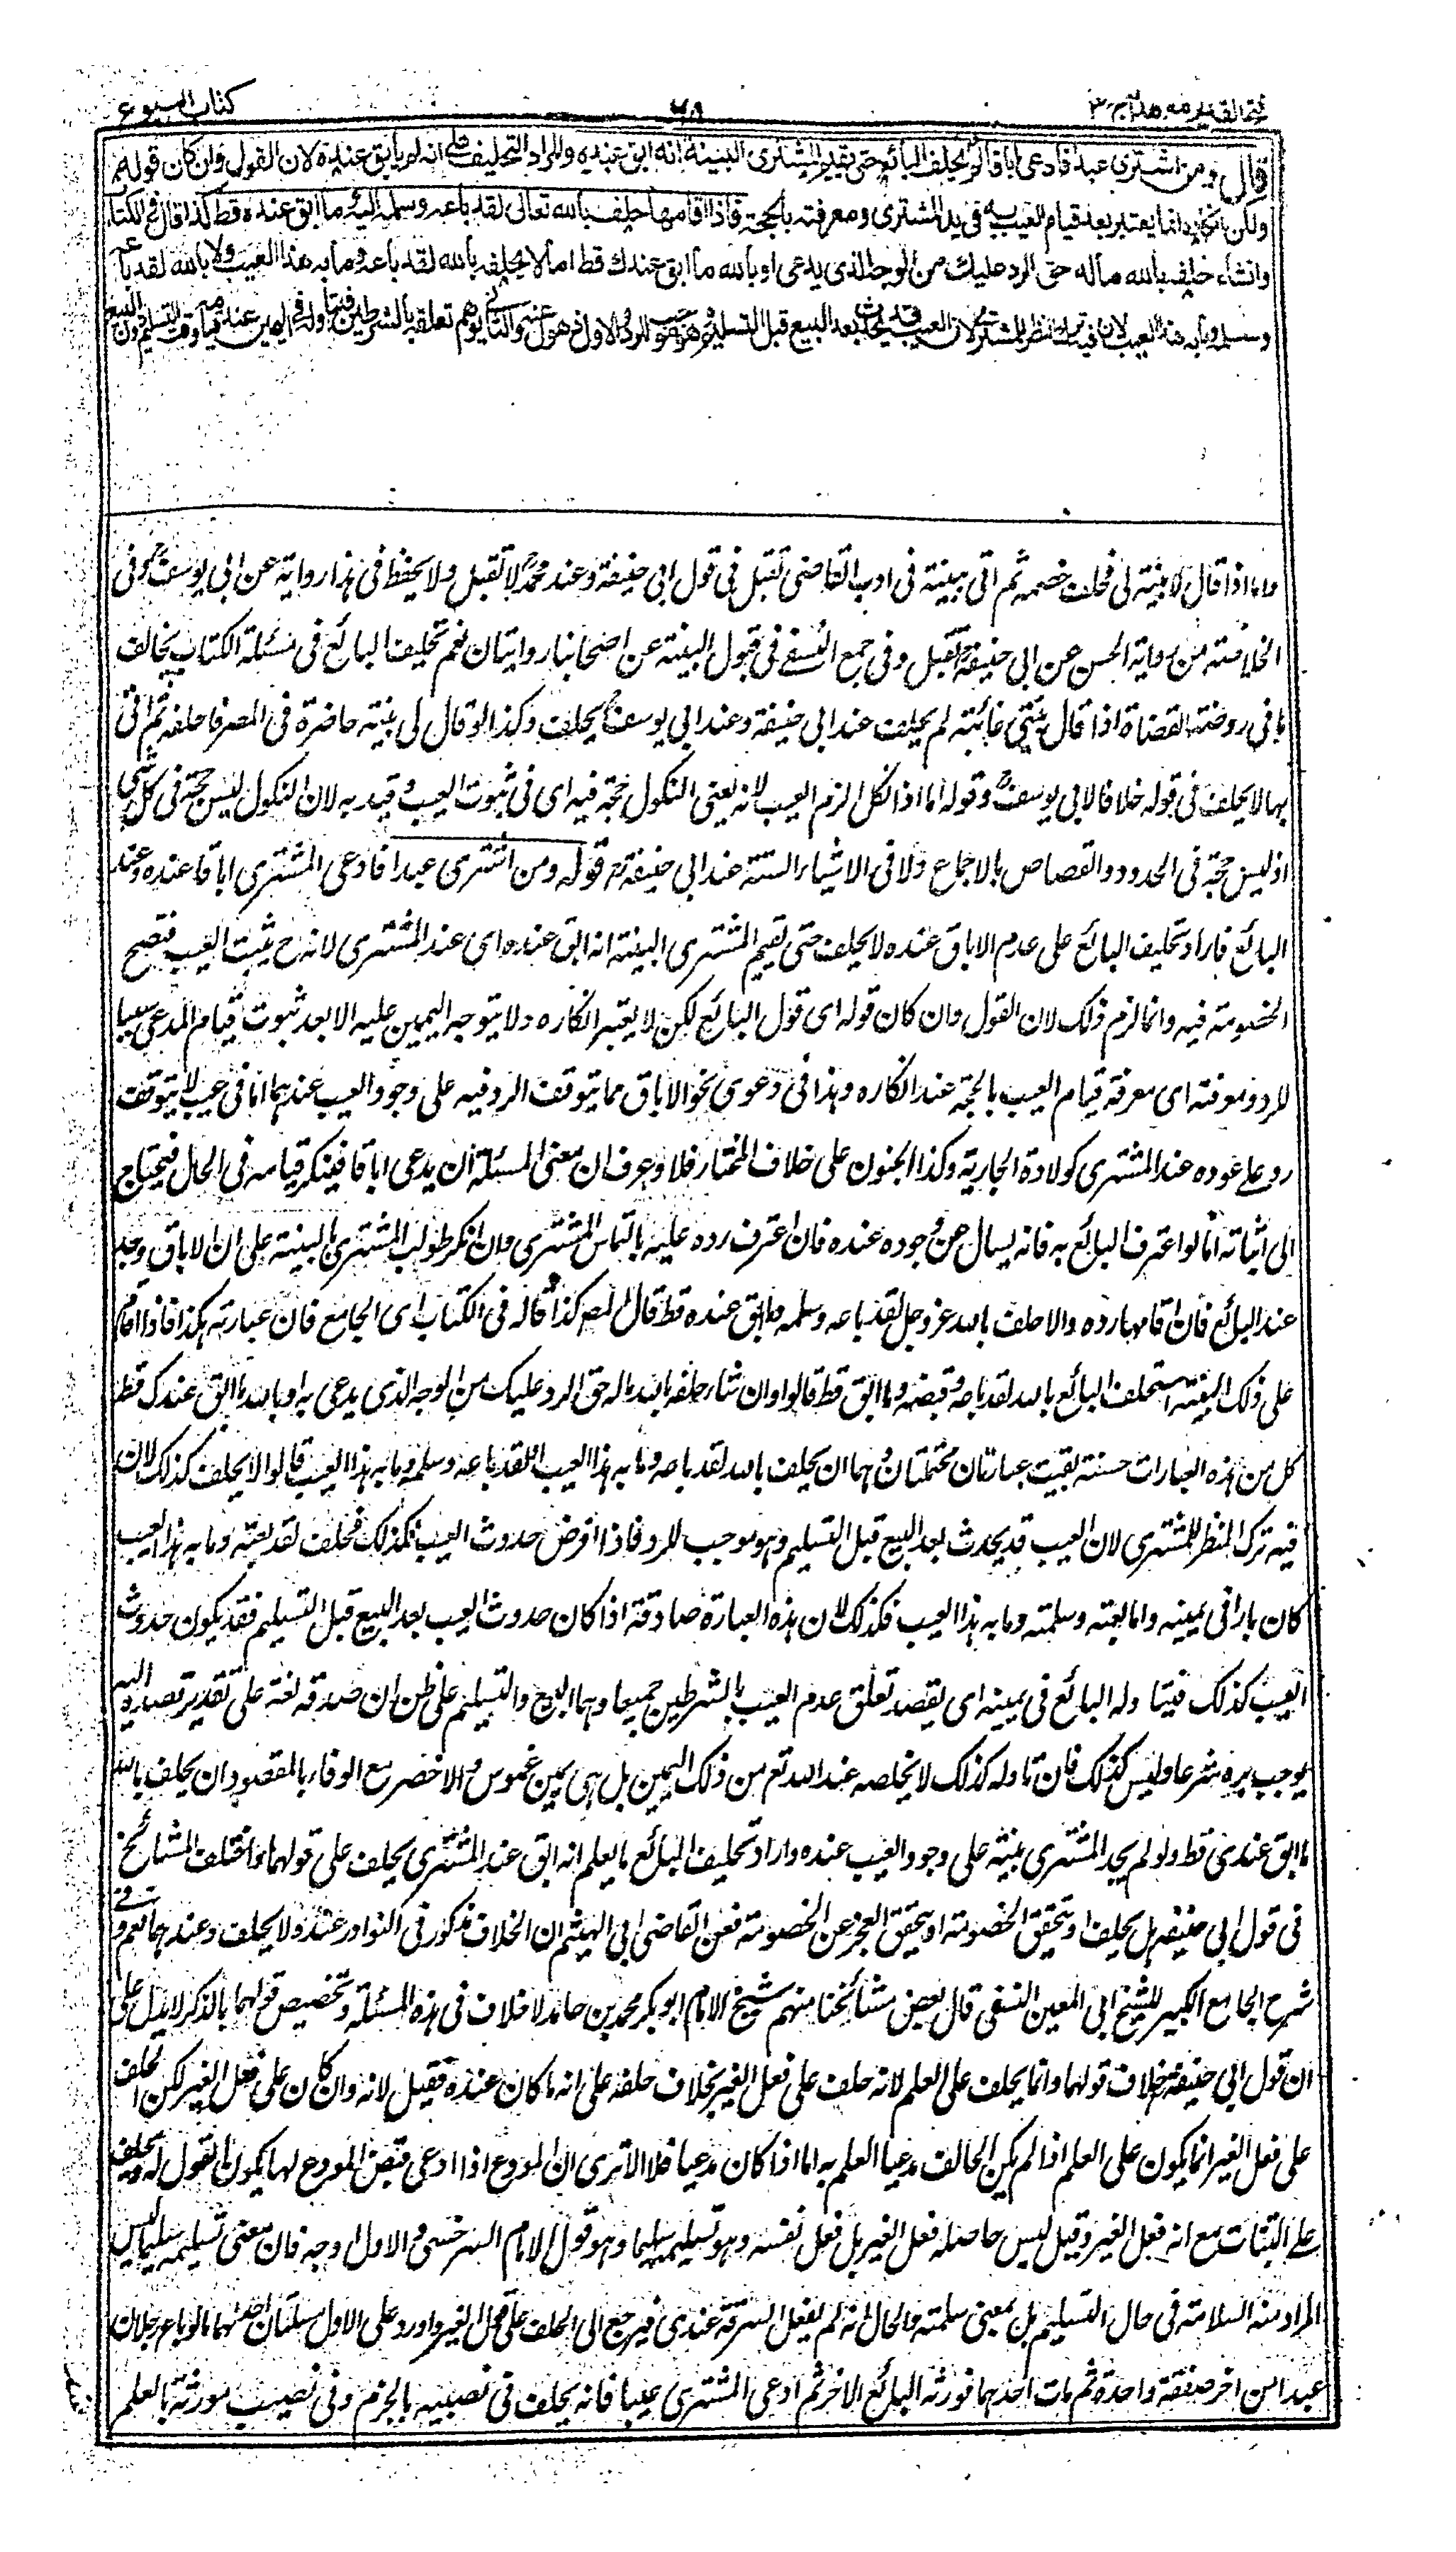 فتح القدير مع هداية ج ٣
٦٨
كتاب البيوع
قال ومن اشترى عبدا فادعى اباقا لم يحلف البائع حتى يقيم المشترى البينة انه ابق عنده والمراد التحليف على انه لم يأبق عنده لان القول وان كان قوله
ولكن انكاره انما يعتبر بعد قيام العيب به فى يد المشترى ومعرفته بالحجة فاذا اقامها حلف بالله تعالى لقد باعه وسلمه اليه وما ابق عنده قط كذا قال فى الكتاب
وان شاء حلفه بالله ماله حق الرد عليك من الوجه الذى يدعى او بالله ما ابق عندك قط اما لا يحلفه بالله لقد باعه وما به هذا العيب ولا بالله لقد باعه
وسلمه وما به هذا العيب لان فيه ترك النظر للمشترى لان العيب قد يحدث بعد البيع قبل التسليم وهو موجب للرد والاول ذهول عنه والثانى يوهم تعلقه بالشرطين فيتأوله فى اليمين عند قيامه وقت التسليم دون البيع
واما اذا قال لا بينة لى فحلف خصمه ثم اتى ببينة فى ادب القاضى تقبل فى قول ابى حنيفة وعند محمد لا تقبل ولا يحفظ فى هذا رواية عن ابى يوسف وفى
الخلاصة من رواية الحسن عن ابى حنيفة تقبل وفى جمع النسفى فى قبول البينة عن اصحابنا روايتان نعم تحليفنا البائع فى مسئلة الكتاب يخالف
ما فى روضة القضاة اذا قال بينتى غائبة لم يحلف عند ابى حنيفة وعند ابى يوسف يحلف وكذا لو قال لى بينة حاضرة فى المصر فاحلفه ثم اتى
بها لا يحلف فى قوله خلافا لابى يوسف وقوله اما اذا نكل لزم العيب لانه يعنى النكول حجة فيه اى فى ثبوت العيب وقيد به لان النكول ليس حجة فى كل شئ
اذ ليس حجة فى الحدود والقصاص بالاجماع ولا فى الاشياء الستة عند ابى حنيفة قوله ومن اشترى عبدا فادعى المشترى اباقا عنده وعند
البائع فاراد تحليف البائع على عدم الاباق عنده لا يحلف حتى يقيم المشترى البينة انه ابق عنده اى عند المشترى لانه ح يثبت العيب فتصح
الخصومة فيه وانما لزم ذلك لان القول وان كان قوله اى قول البائع لكن لا يعتبر انكاره ولا يتوجه اليمين عليه الا بعد ثبوت قيام المدعى سببا
للرد ومعرفته اى معرفة قيام العيب بالحجة عند انكاره وهذا فى دعوى نحو الاباق مما يتوقف الرد فيه على وجود العيب عندهما اما فى عيب لا يتوقف
رده على عوده عند المشترى كولادة الجارية وكذا الجنون على خلاف المختار فلا وعرف ان معنى المسئلة ان يدعى اباقا فينكر قيامه فى الحال فيحتاج
الى اثباته اما لو اعترف البائع به فانه يسال عن وجوده عنده فان اعترف رده عليه بالتماس المشترى وان انكر طولب المشترى بالبينة على ان الاباق وجد
عند البائع فان اقامها رده والا حلف بالله عز وجل لقد باعه وسلمه وما ابق عنده قط قال المص كذا قاله فى الكتاب اى الجامع فان عبارته هكذا فاذا اقام
على ذلك البينة استحلف البائع بالله لقد باعه وقبضه وما ابق قط قالوا وان شاء حلفه بالله ما له حق الرد عليك من الوجه الذى يدعى به او بالله ما ابق عندك قط
كل من هذه العبارات حسنة بقيت عبارتان محتملتان وهما ان يحلف بالله لقد باعه وما به هذا العيب او لقد باعه وسلمه وما به هذا العيب قالوا لا يحلف كذلك لان
فيه ترك النظر للمشترى لان العيب قد يحدث بعد البيع قبل التسليم وهو موجب للرد فاذا افرض حدوث العيب كذلك فحلف لقد بعته وما به هذا العيب
كان بارا فى يمينه واما بعته وسلمته وما به هذا العيب فكذلك لان هذه العبارة صادقة اذا كان حدوث العيب بعد البيع قبل التسليم فقد يكون حدوث
العيب كذلك فيتا وله البائع فى يمينه اى يقصد تعلق عدم العيب بالشرطين جميعا وهما البيع والتسليم على ظن ان صدقه لغة على تقدير قصده اليه
يوجب بره شرعا وليس كذلك فان تاوله كذلك لا يخلصه عند الله تعم من ذلك اليمين بل هى يمين غموس والاخصر مع الوفاء بالمقصود ان يحلف بالله
ما ابق عندى قط ولو لم يجد المشترى بينة على وجود العيب عنده واراد تحليف البائع ما يعلم انه ابق عند المشترى يحلف على قولهما واختلف المشائخ
فى قول ابى حنيفة هل يحلف او يتحقق الخصومة او يتحقق العجز عن الخصومة فعن القاضى ابى الهيثم ان الخلاف مذكور فى النوادر عنده لا يحلف وعندهما نعم وفى
شرح الجامع الكبير للشيخ ابى المعين النسفى قال بعض مشائخنا منهم شيخ الامام ابو بكر محمد بن حامد لا خلاف فى هذه المسئلة وتخصيص قولهما بالذكر لا يدل على
ان قول ابى حنيفة خلاف قولهما وانما يحلف على العلم لانه حلف على فعل الغير بخلاف حلفه على انه ما كان عنده فقيل لانه وان كان على فعل الغير لكن الحلف
على فعل الغير انما يكون على العلم اذا لم يكن الحالف مدعيا العلم به اما اذا كان مدعيا فلا الا ترى ان المودع اذا ادعى قبض المودع لها يكون القول له ويحلف
على البتات مع انه فعل الغير وقيل ليس حاصله فعل الغير بل فعل نفسه وهو تسليمه سليما وهو قول الامام السرخسى والاول اوجه فان معنى تسليمه سليما ليس
المراد منه السلامة فى حال التسليم بل بمعنى سلمته والحال انه لم يفعل السرقة عندى فيرجع الى الحلف على فعل الغير واورد على الاول مسئلتان احدهما ما لو باع رجلان
عبدا من اخر صفقة واحدة ثم مات احدهما فورثه البائع الاخر ثم ادعى المشترى عيبا فانه يحلف فى نصيبه بالجزم وفى نصيب مورثه بالعلم